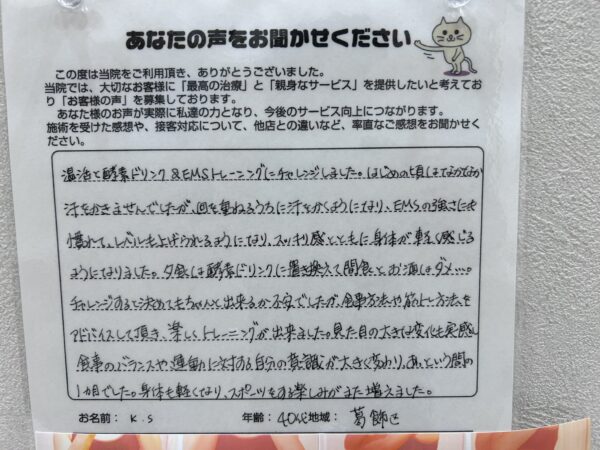 あなたの声をお聞かせください
この度は当院をご利用頂き、ありがとうございました。
当院では、大切なお客様に「最高の治療」と「親身なサービス」を提供したいと考えてお
り「お客様の声」を募集しております。
あなた様のお声が実際に私達の力となり、今後のサービス向上につながります。
施術を受けた感想や、接客対応について、他店との違いなど、率直なご感想をお聞かせく
ださい。
温活と酵素ドリンク&EMSトレーニングにチャレンジしました。はじめの頃はなかなか
汗をかきませんでしたが、回を重ねるうちに汗をかくようになり、EMSの強さにも
慣れて、レベルも上げられるようになり、スッキリ感とともに身体が軽く感じる
ようになりました。夕食は酵素ドリンクに置き換えて間食とお酒はダメ…。
チャレンジすると決めてもちゃんと出来るか不安でしたが、食事方法や筋トレ方法を
アドバイスして頂き、楽しくトレーニングが出来ました。見た目の大きな変化も実感し
食事のバランスや、運動に対する自分の意識が大きく変わり、あっという間の
1ヶ月でした。身体も軽くなり、スポーツをする楽しみがまた増えました。
お名前: K.S 年齢:40代 地域: 葛飾区